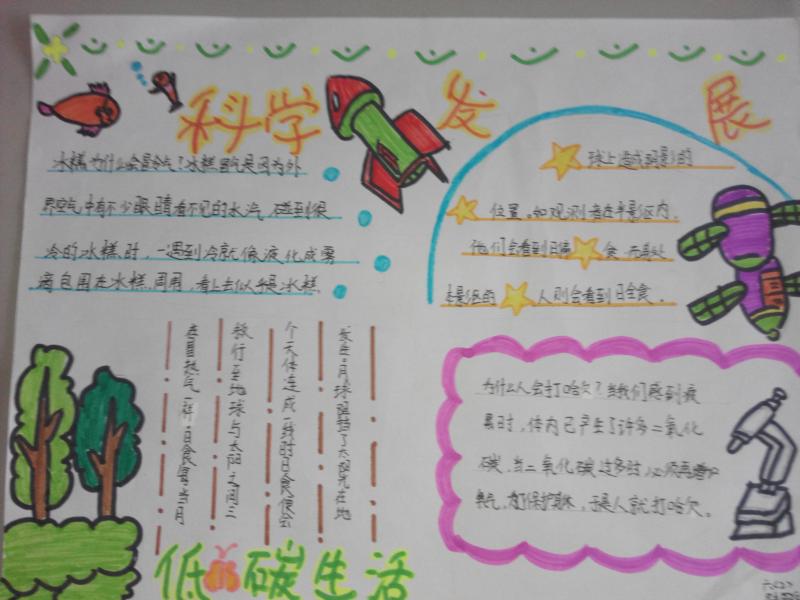 科学发展
冰糕为什么会冒冷气？冰糕冒气是因为外
界空气中有不少眼睛看不见的水汽，碰到很
冷的冰糕时，一遇到冷就像液化成雾
滴包围在冰糕周围，看上去似乎是冰糕
在冒热气一样。日食是当月
敫行至地球与太阳之间三
个天体连成一线时日食便会
发生。月球阻挡了太阳光在地
球上造成阴影的
位置。如观测者在半影区内，
他们会看到日偏食而身处
本影区的人则会看到日全食。
为什么人会打哈欠？当我们感到疲
累时，体内已产生了许多二氧化
碳，当二氧化碳过多时，必须再增加
氧气，才保护身体，于是人就打哈欠。
低碳生活